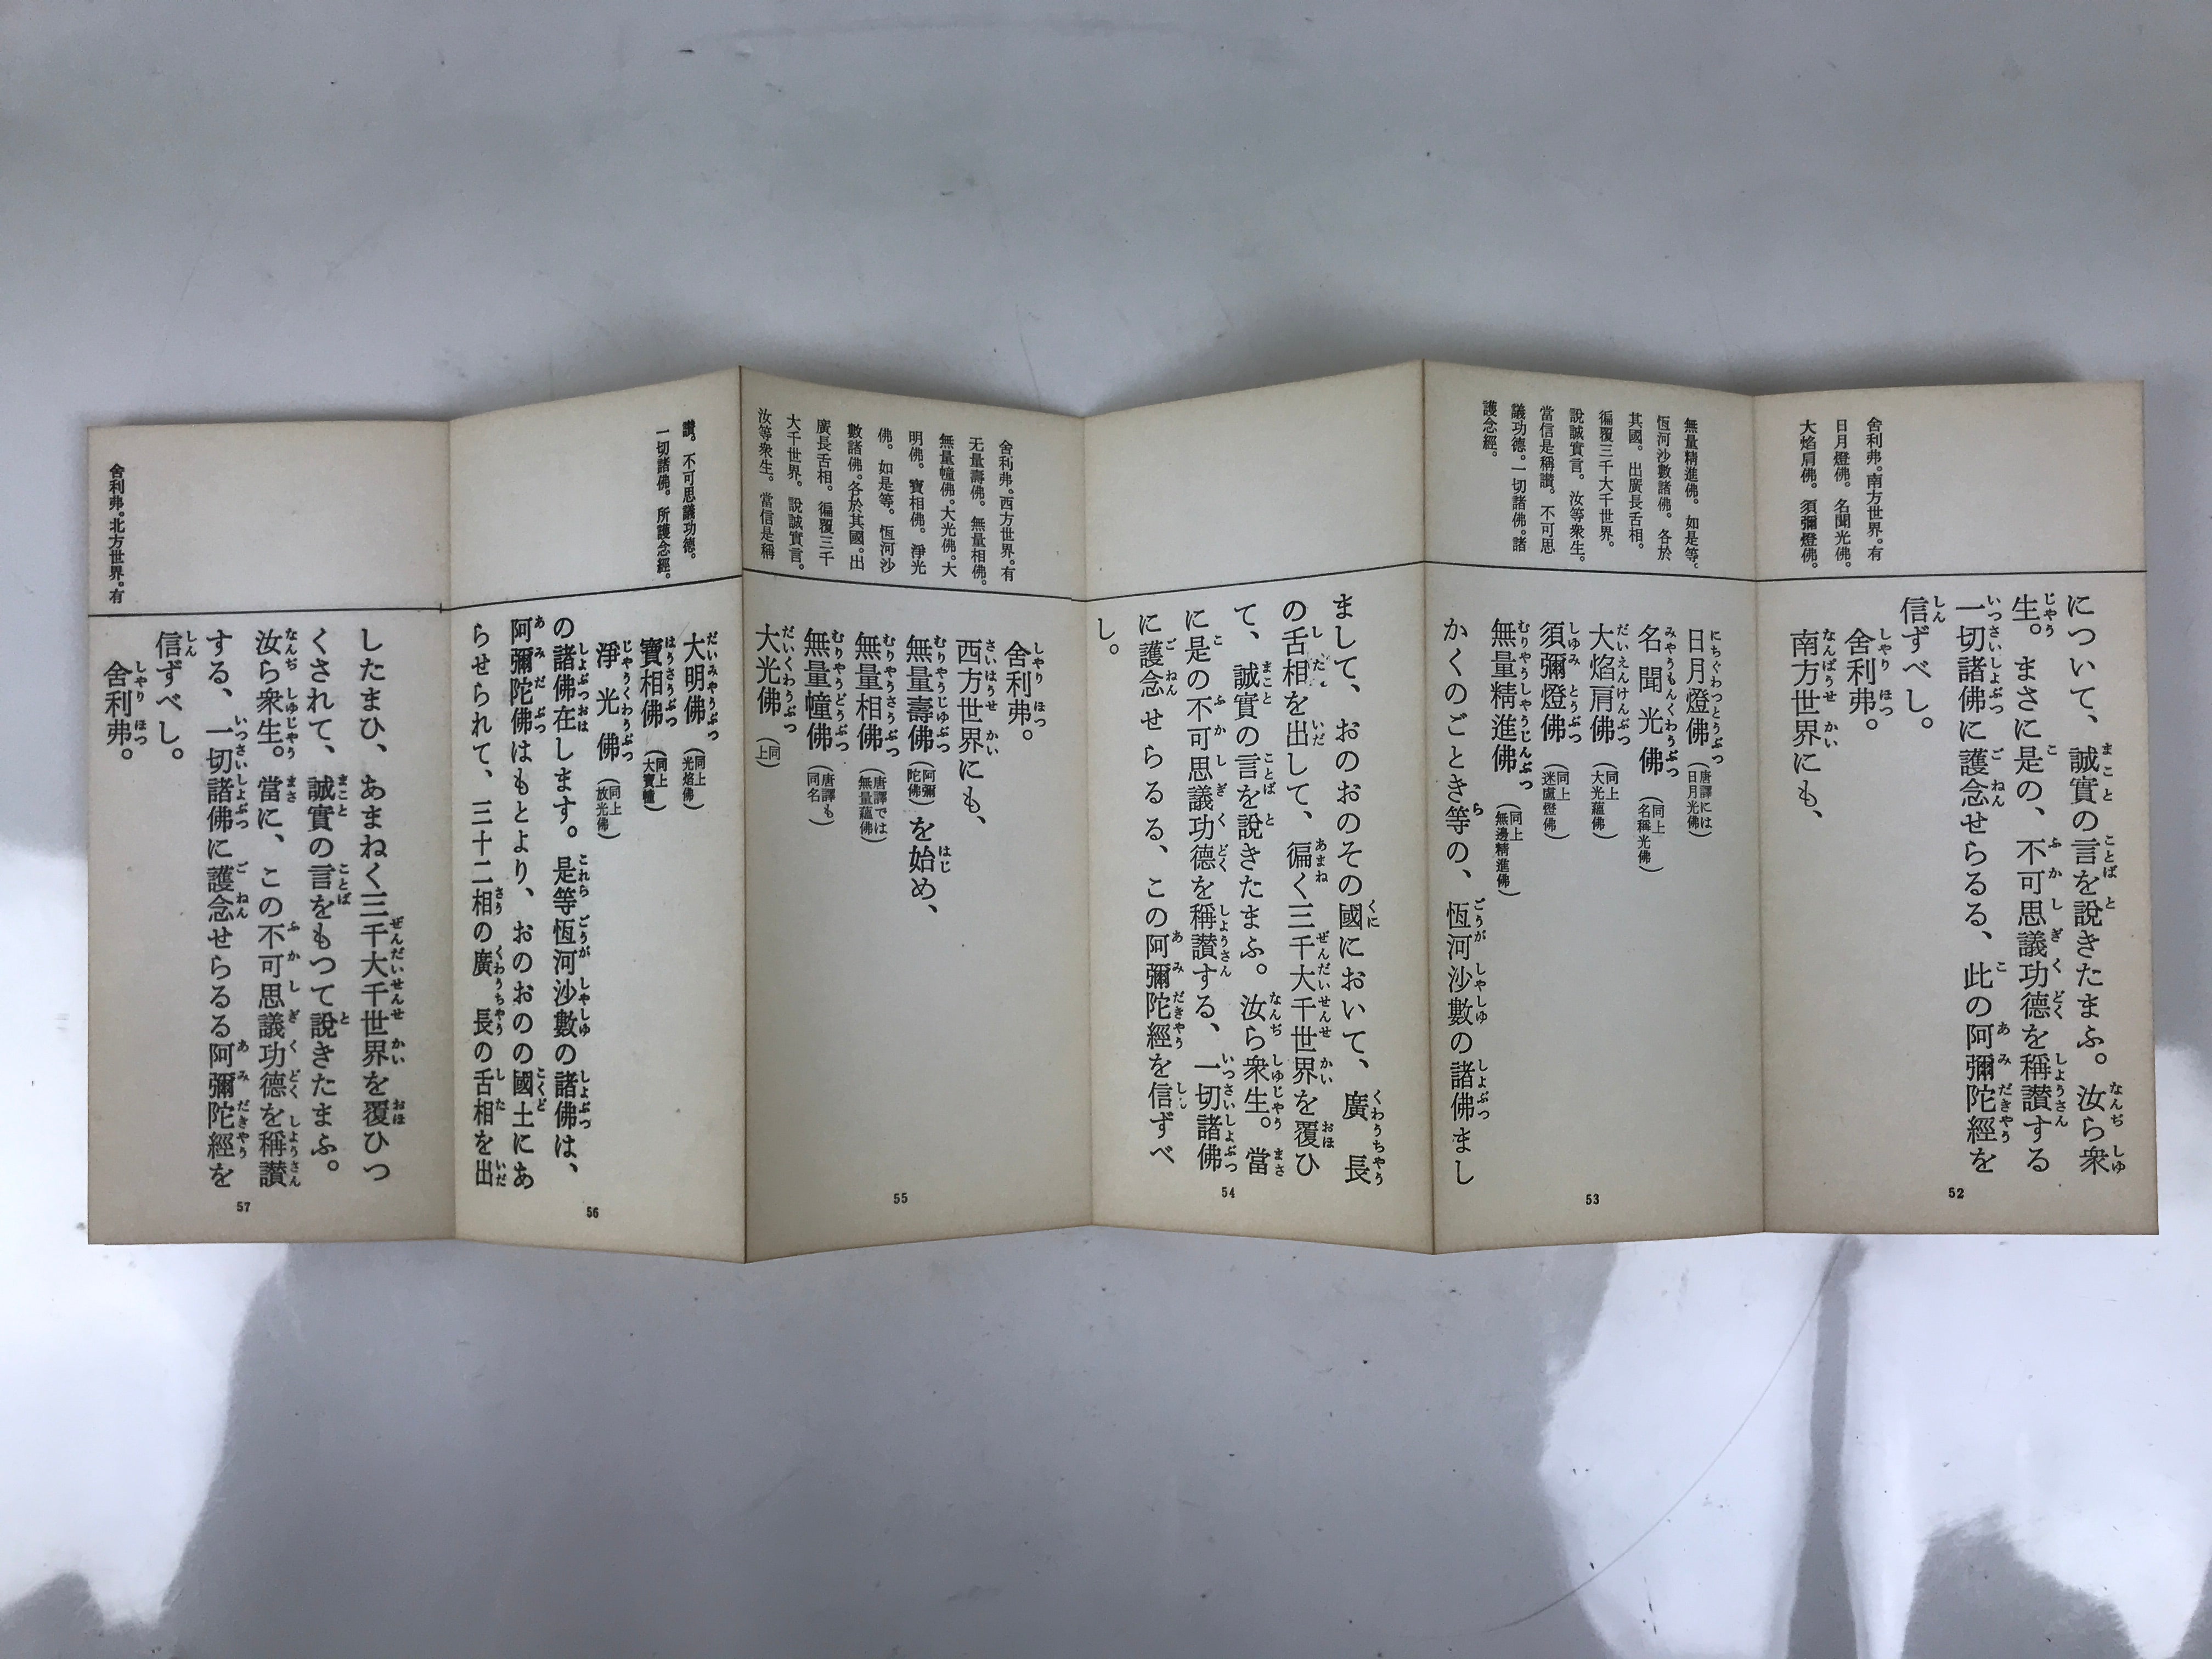 舍利弗。南方世界。有
日月燈佛。名聞光佛。
大焰肩佛。須彌燈佛。
について、誠實の言を說きたまふ。汝ら衆
生。まさに是の、不可思議功德を稱讃する
一切諸佛に護念せらるる、此の阿彌陀經を
信ずべし。
舍利弗。
南方世界にも、
52
無量精進佛。如是等。
恆河沙數諸佛。各於
其國。出廣長舌相。
徧覆三千大千世界。
說誠實言。汝等衆生。
當信是稱讃。不可思
議功德。一切諸佛。諸
護念經。
日月燈佛（唐譯には日月光佛）
名聞光佛（同上名稱光佛）
大焰肩佛（同上大光蘊佛）
須彌燈佛（同上迷盧燈佛）
無量精進佛（同上無邊精進佛）
かくのごとき等の、恆河沙數の諸佛まし
53
まして、おのおのその國において、廣長
の舌相を出して、徧く三千大千世界を覆ひ
て、誠實の言を說きたまふ。汝ら衆生。當
に是の不可思議功德を稱讃する、一切諸佛
に護念せらるる、この阿彌陀經を信ずべ
し。
54
舍利弗。西方世界。有
无量壽佛。無量相佛。
無量幢佛。大光佛。大
明佛。寶相佛。淨光
佛。如是等。恆河沙
數諸佛。各於其國。出
廣長舌相。徧覆三千
大千世界。說誠實言。
汝等衆生。當信是稱
舍利弗。
西方世界にも、
無量壽佛（阿彌陀佛）を始め、
無量相佛（唐譯では無量蘊佛）
無量幢佛（唐譯も同名）
大光佛（同上）
55
讃。不可思議功德。
一切諸佛。所護念經。
大明佛（同上光焰佛）
寶相佛（同上大寶幢）
淨光佛（同上放光佛）
の諸佛在します。是等恆河沙數の諸佛は、
阿彌陀佛はもとより、おのおのの國土にあ
らせられて、三十二相の廣長の舌相を出
56
舍利弗。北方世界。有
したまひ、あまねく三千大千世界を覆ひつ
くされて、誠實の言をもつて說きたまふ。
汝ら衆生。當に、この不可思議功德を稱讃
する、一切諸佛に護念せらるる阿彌陀經を
信ずべし。
舍利弗。
57